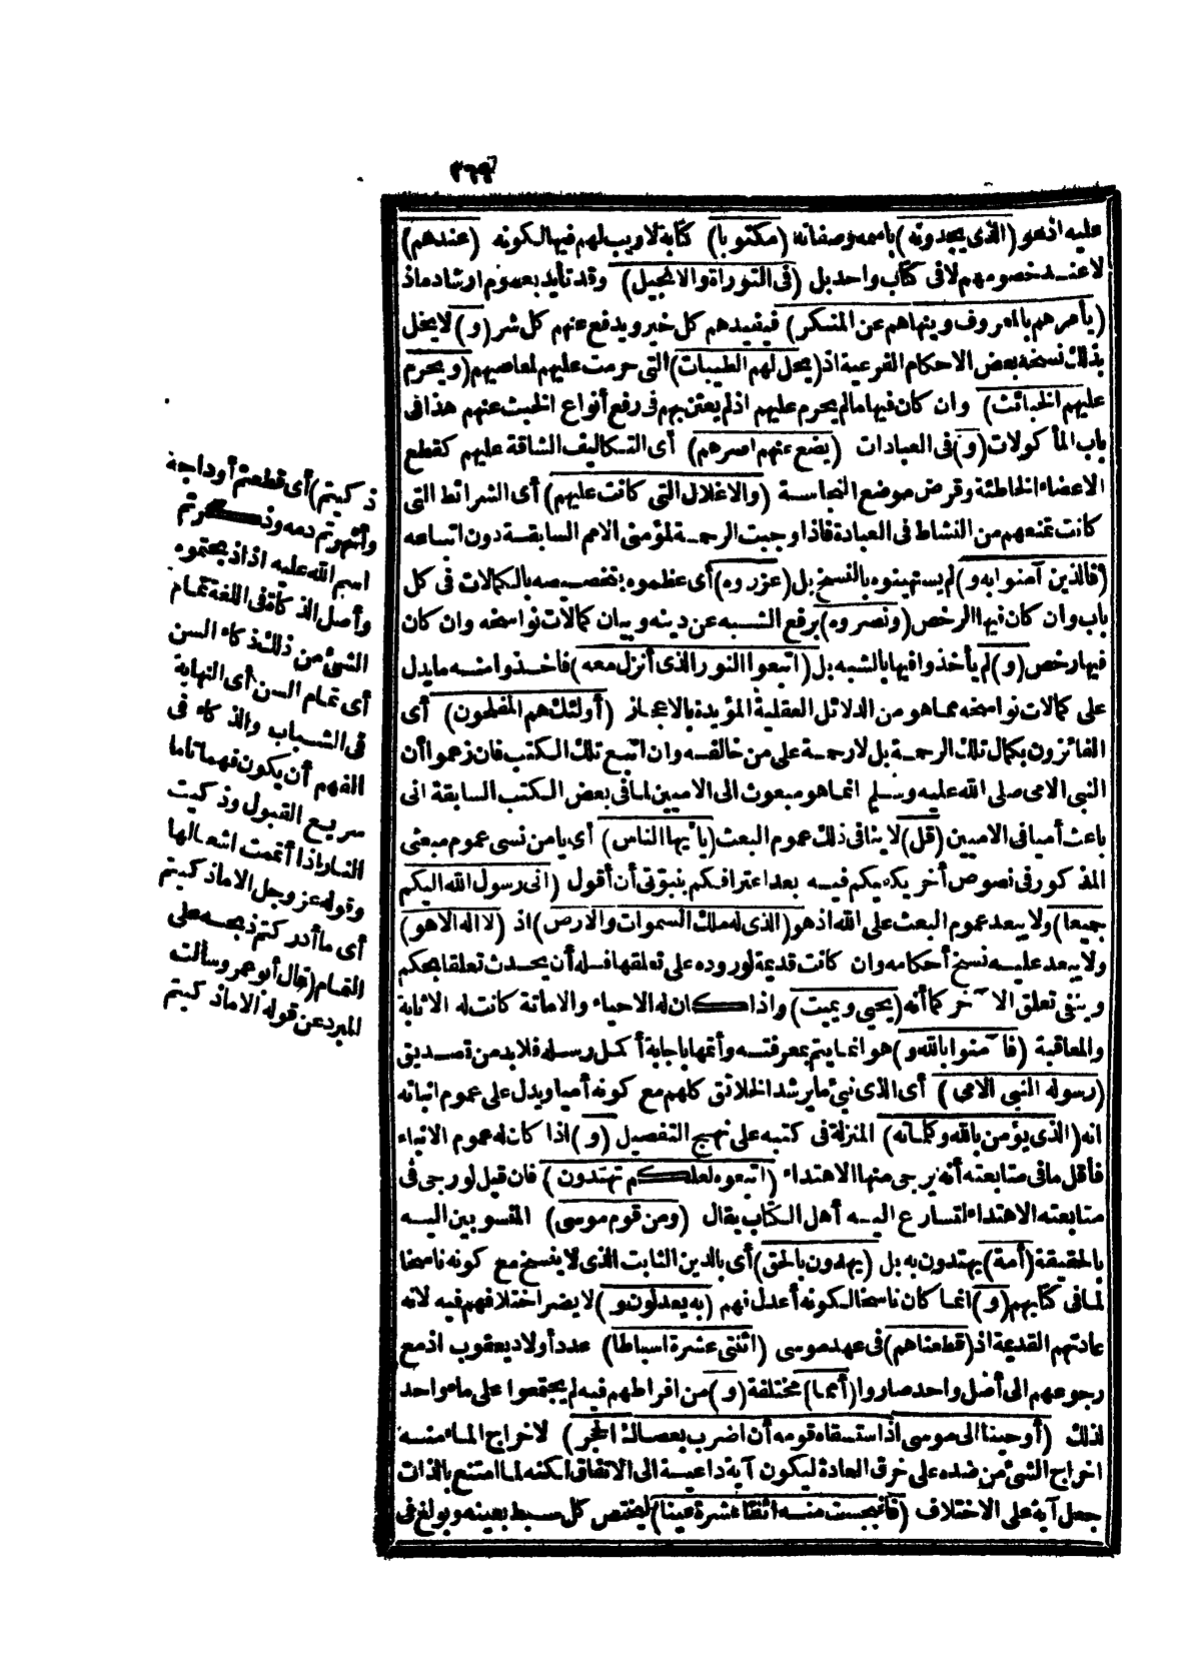 ٢٦٩
عليه اذهو (الذى يجدونه) باسمه وصفاته (مكتوبا) كتابة لاريب لهم فيها لكونه (عندهم)
لا عند خصومهم لا فى كتاب واحد بل (فى التوراة والانجيل) وقد تأيد بعموم ارشاده اذ
(يأمرهم بالمعروف وينهاهم عن المنكر) فيفيدهم كل خير ويدفع عنهم كل شر (و) لا يخل
بذلك نسخه بعض الاحكام الفرعية اذ (يحل لهم الطيبات) التى حرمت عليهم لمعاصيهم (ويحرم
عليهم الخبائث) وان كان فيها ما لم يحرم عليهم اذ لم يعتن بهم فى رفع أنواع الخبث عنهم هذا فى
باب المأكولات (و) فى العبادات (يضع عنهم اصرهم) أى التكاليف الشاقة عليهم كقطع
الاعضاء الخاطئة وقرض موضع النجاسة (والاغلال التى كانت عليهم) أى الشرائط التى
كانت تمنعهم من النشاط فى العبادة فاذا وجبت الرحمة لمؤمنى الامم السابقة دون اتباعه
(فالذين آمنوا به و) لم يستهينوه بالنسخ بل (عزروه) أى عظموه بتخصيصه بالكمالات فى كل
باب وان كان فيها الرخص (ونصروه) برفع الشبه عن دينه وبيان كمالات نواسخه وان كان
فيها رخص (و) لم يأخذوا فيها بالشبه بل (اتبعوا النور الذى أنزل معه) فاخذوا منه ما يدل
على كمالات نواسخه مما هو من الدلائل العقلية المؤيدة بالاعجاز (أولئك هم المفلحون) أى
الفائزون بكمال تلك الرحمة بل لا رحمة على من خالفه وان اتبع تلك الكتب فان زعموا أن
النبى الامى صلى الله عليه وسلم انما هو مبعوث الى الاميين لما فى بعض الكتب السابقة انى
باعث أميا فى الاميين (قل) لا ينافى ذلك عموم البعث (يا أيها الناس) أى يا من نسى عموم مبعثى
المذكور فى نصوص أخر يكفيكم فيه بعد اعترافكم بنبوتى أن أقول (انى رسول الله اليكم
جميعا) ولا يبعد عموم البعث على الله اذ هو (الذى له ملك السموات والارض) اذ (لا اله الا هو)
ولا يبعد عليه نسخ أحكامه وان كانت قديمة لوروده على تعلقها فله أن يحدث تعلقا بحكم
وينفى تعلق الآخر كما أنه (يحيى ويميت) واذا كان له الاحياء والاماتة كانت له الاثابة
والمعاقبة (فآمنوا بالله و) هو انما يتم بمعرفته وأتمها باجابة أكمل رسله فلا بد من تصديق
(رسوله النبى الامى) أى الذى نبئ ما يرشد الخلائق كلهم مع كونه أميا ويدل على عموم انبائه
انه (الذى يؤمن بالله وكلماته) المنزلة فى كتبه على نهج التفصيل (و) اذا كان له عموم الانباء
فأقل ما فى متابعته أنه يرجى منها الاهتداء (اتبعوه لعلكم تهتدون) فان قيل لو رجى فى
متابعته الاهتداء لتسارع اليه أهل الكتاب يقال (ومن قوم موسى) المنسوبين اليه
بالحقيقة (أمة) يهتدون به بل (يهدون بالحق) أى بالدين الثابت الذى لا ينسخ مع كونه ناسخا
لما فى كتابهم (و) انما كان ناسخا لكونه أعدل فهم (به يعدلون و) لا يضر اختلافهم فيه لانه
عادتهم القديمة اذ (قطعناهم) فى عهد موسى (اثنتى عشرة اسباطا) عدد أولاد يعقوب اذ مع
رجوعهم الى أصل واحد صاروا (أمما) مختلفة (و) من افراطهم فيه لم يجتمعوا على ماء واحد
لذلك (أوحينا الى موسى اذ استسقاه قومه أن اضرب بعصاك الحجر) لاخراج الماء منه
اخراج الشئ من ضده على خرق العادة ليكون آية داعية الى الاتفاق لكنه لما امتنع بالذات
جعل آية على الاختلاف (فانبجست منه اثنتا عشرة عينا) ليختص كل سبط بعينه وبولغ فى
ذكيتم) أى قطعتم أوداجه
وأنهرتم دمه وذكرتم
اسم الله عليه اذا ذبحتموه
وأصل الذكاة فى اللغة تمام
الشئ من ذلك ذكاء السن
أى تمام السن أى النهاية
فى الشباب والذكاء فى
الفهم أن يكون فهما تاما
سريع القبول وذكيت
النار اذا أتممت اشعالها
وقوله عز وجل الا ما ذكيتم
أى ما أدركتم ذبحه على
التمام (قال أبو عمر وسألت
المبرد عن قوله الا ما ذكيتم